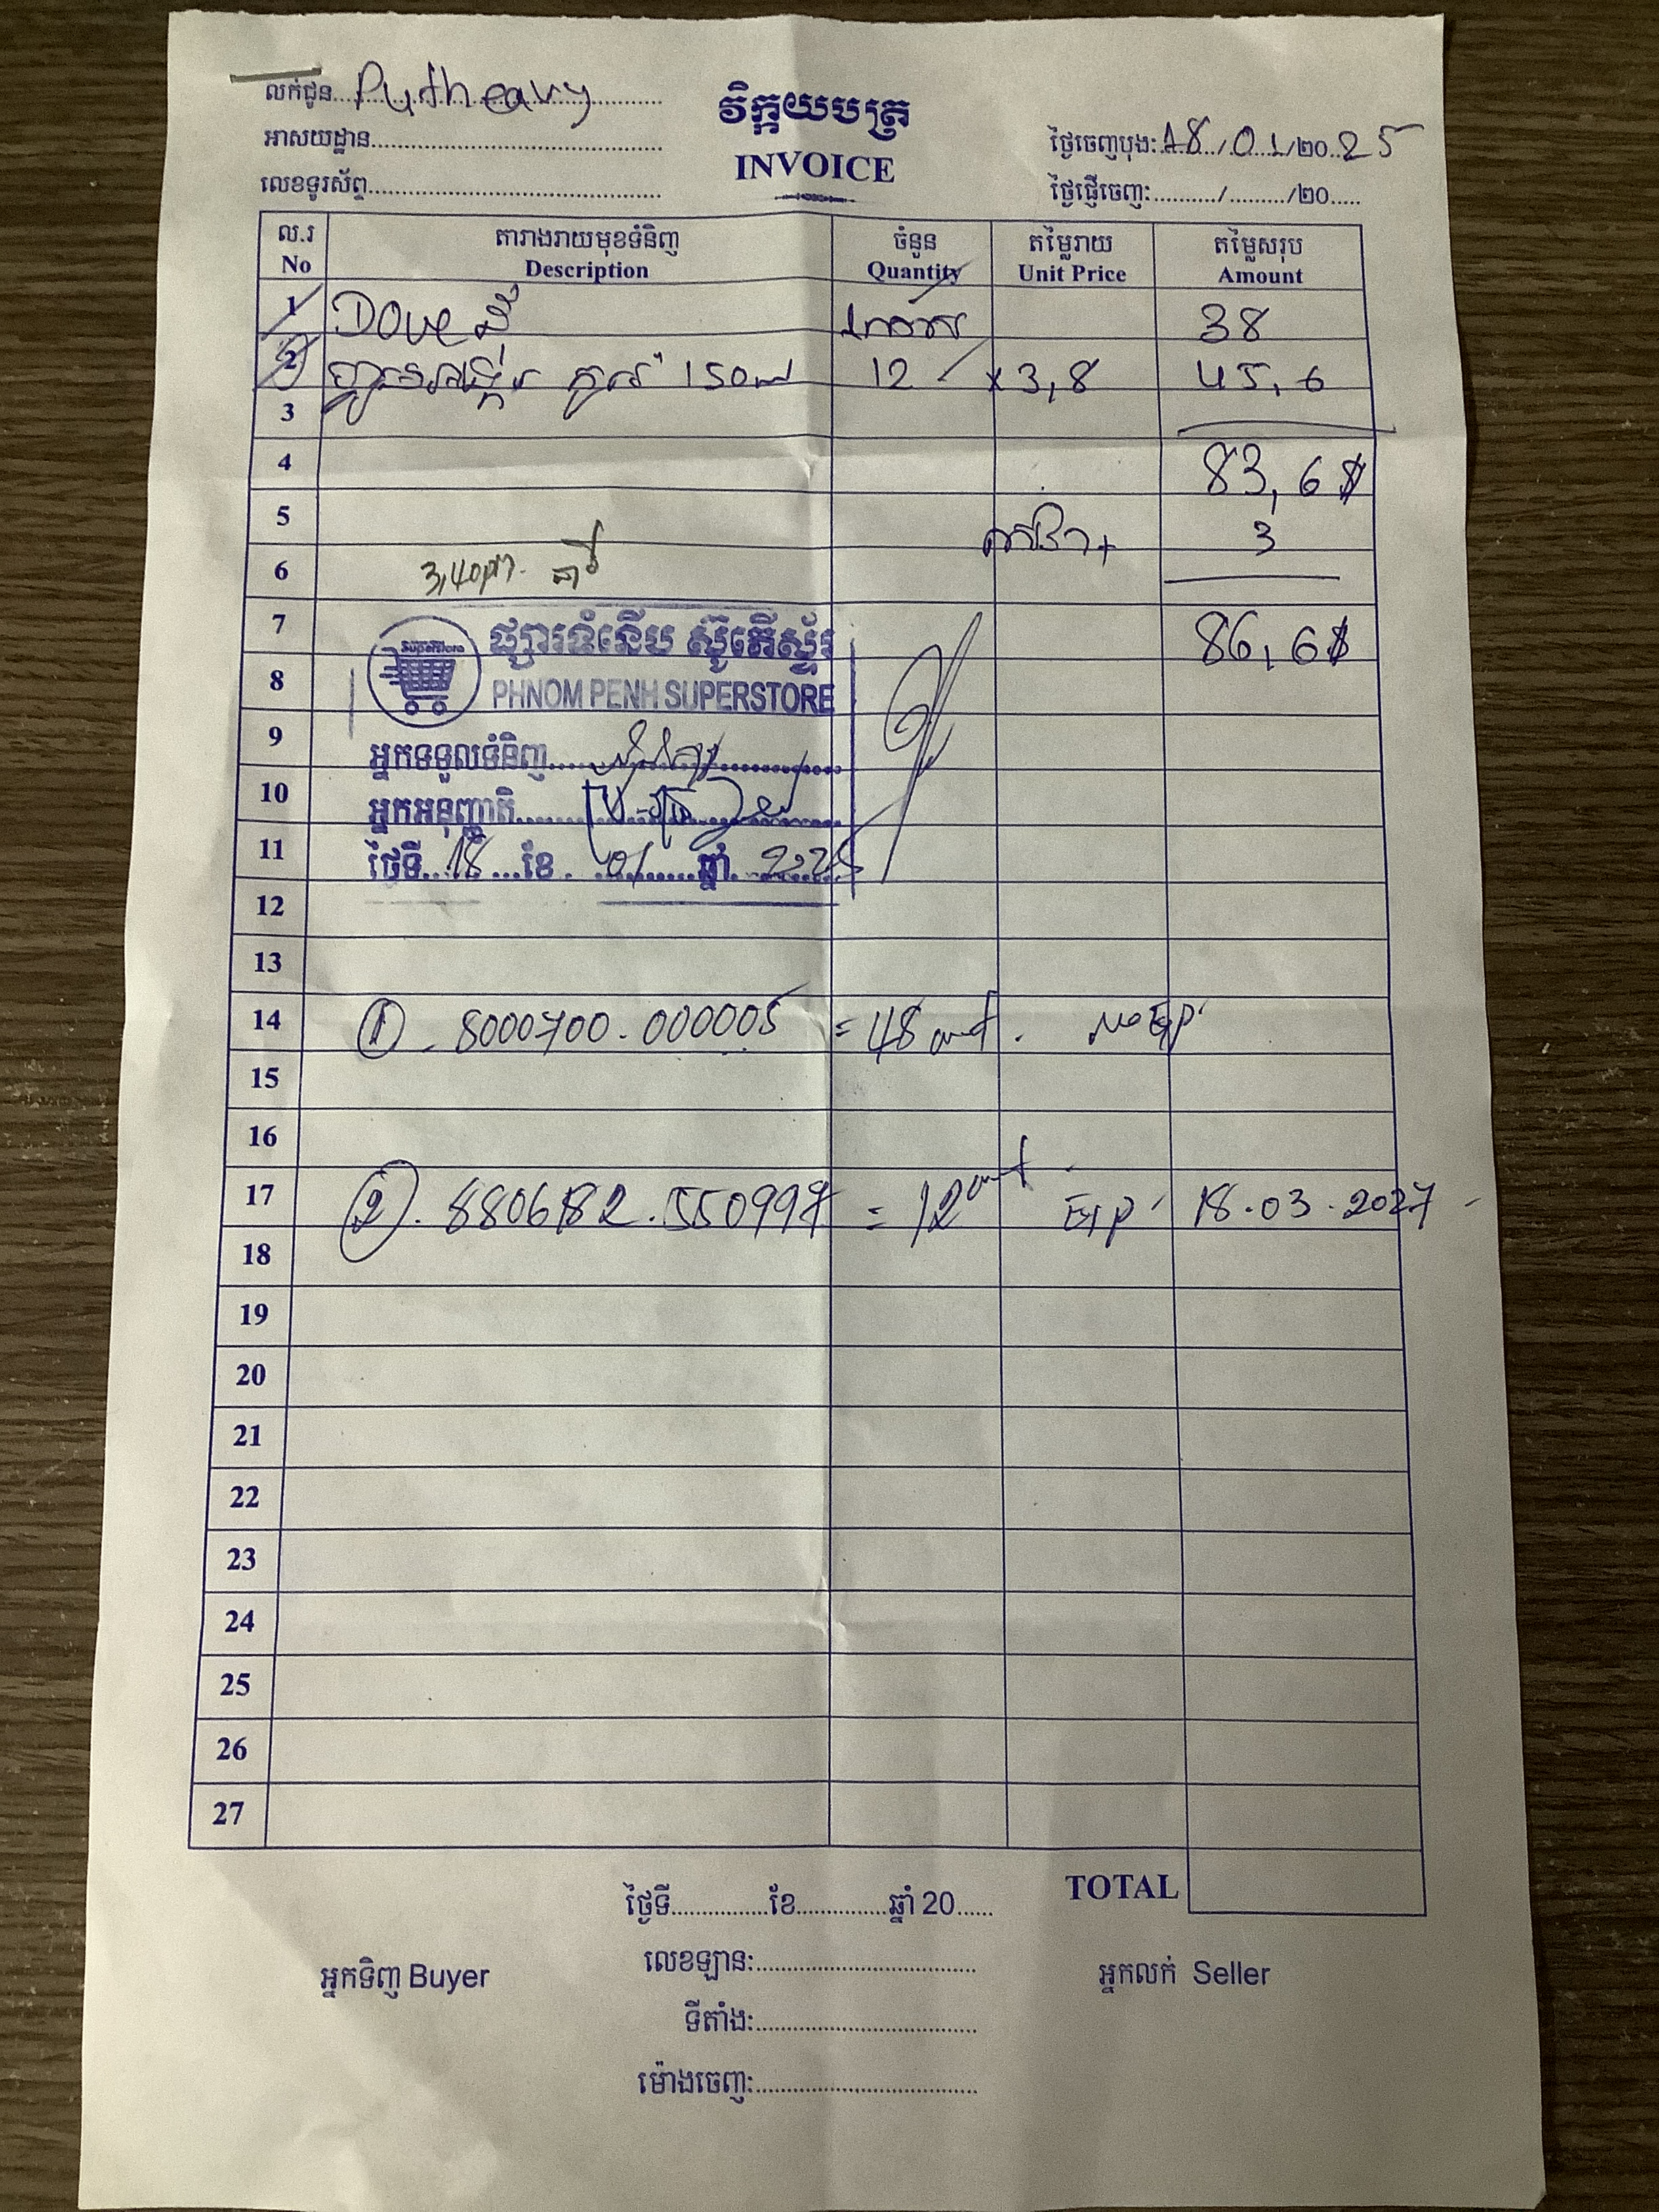 លក់ជូន.......Putheavy.......
វិក្កយបត្រ
អាសយដ្ឋាន..............
ថ្ងៃចេញបុង: 18/01/2025
INVOICE
លេខទូរស័ព្ទ..............
ថ្ងៃផ្ញើចេញ:........../........./20.....
ល.រ តារាងរាយមុខទំនិញ ចំនួន តម្លៃរាយ តម្លៃសរុប
No Description Quantity Unit Price Amount
1 Dove ដុំ 38
2 150ml 12 x 3,8 45,6
3
4 83,6$
5 3
6 3,40pm.
7 86,6$
Superstore
ផ្សារទំនើប ស៊ូភើស្ទ័រ
8
PHNOM PENH SUPERSTORE
9 អ្នកទទួលទំនិញ
10 អ្នកអនុញ្ញាតិ
11 ថ្ងៃទី 18 ខែ 01 ឆ្នាំ 2025
12
13
14 ① 8000700.000005 = 48 unit. No Exp
15
16
17 ②. 8806182.550997 = 12 unit Exp 18.03.2027
18
19
20
21
22
23
24
25
26
27
TOTAL
ថ្ងៃទី................ខែ...............ឆ្នាំ 20......
លេខឡាន:..............
អ្នកទិញ Buyer
អ្នកលក់ Seller
ទីតាំង:..............
ម៉ោងចេញ:..............